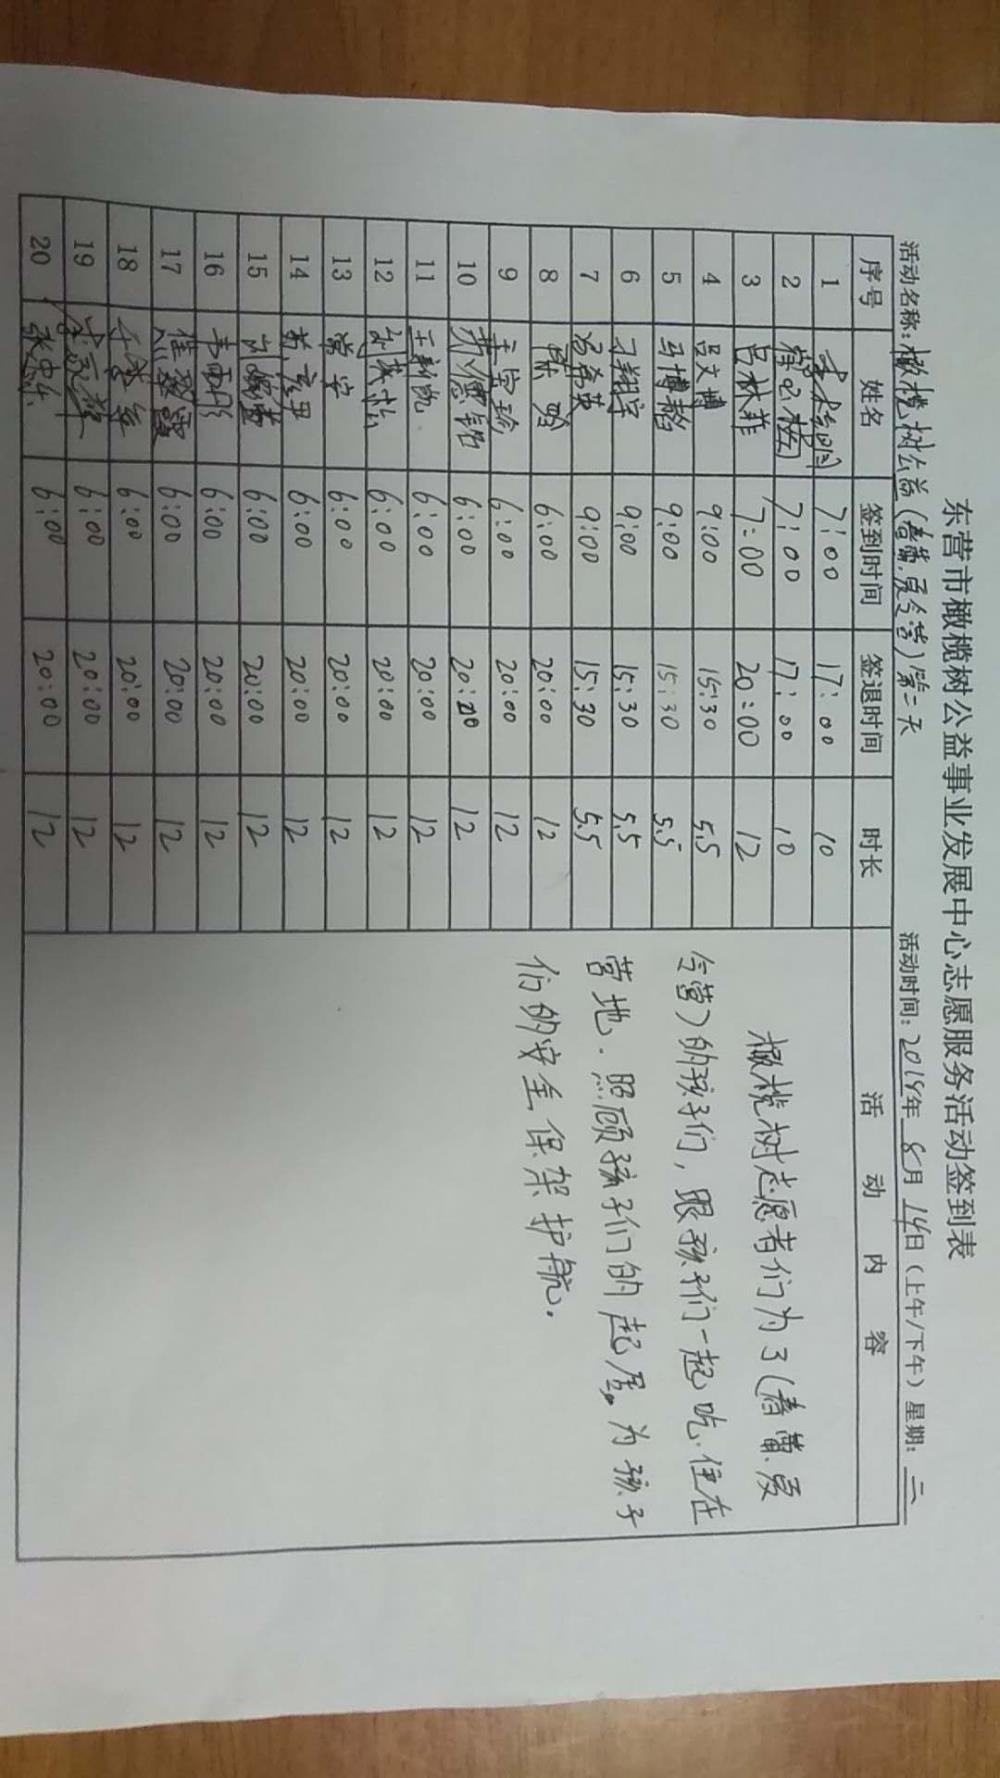 东营市橄榄树公益事业发展中心志愿服务活动签到表
活动名称：橄榄树公益（春蕾.夏令营）第二天 活动时间：2018年8月14日（上午/下午）星期：二
序号 姓名 签到时间 签退时间 时长 活动内容
1 7:00 17:00 10
2 7:00 17:00 10
3 吕林菲 7:00 20:00 12
4 吕文博 9:00 15:30 5.5
5 马博韬 9:00 15:30 5.5
6 刁翔宇 9:00 15:30 5.5
7 9:00 15:30 5.5
8 6:00 20:00 12
9 6:00 20:00 12
10 6:00 20:20 12
11 王新凯 6:00 20:00 12
12 6:00 20:00 12
13 6:00 20:00 12
14 6:00 20:00 12
15 6:00 20:00 12
16 韦雨彤 6:00 20:00 12
17 崔翠霞 6:00 20:00 12
18 6:00 20:00 12
19 6:00 20:00 12
20 6:00 20:00 12
橄榄树志愿者们为了（春蕾.夏
令营）的孩子们，跟孩子们一起吃.住在
营地.照顾孩子们的起居。为孩子
们的安全保架护航.